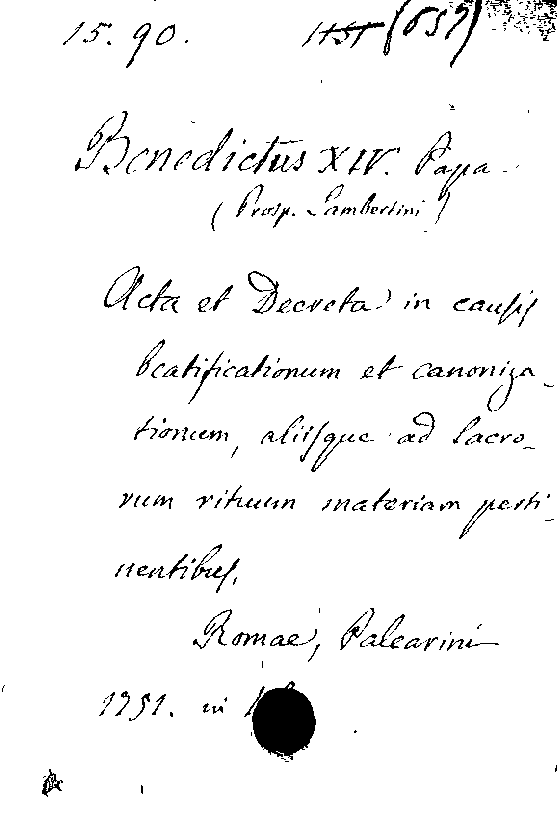 15. 90. HST (657)
Benedictus XIV. Papa.
(Prosp. Lambertini)
Acta et Decreta in causis
beatificationum et canoniza-
tionum, aliisque ad Sacro-
rum rituum materiam perti-
nentibus.
Romae, Palearini
1751. in